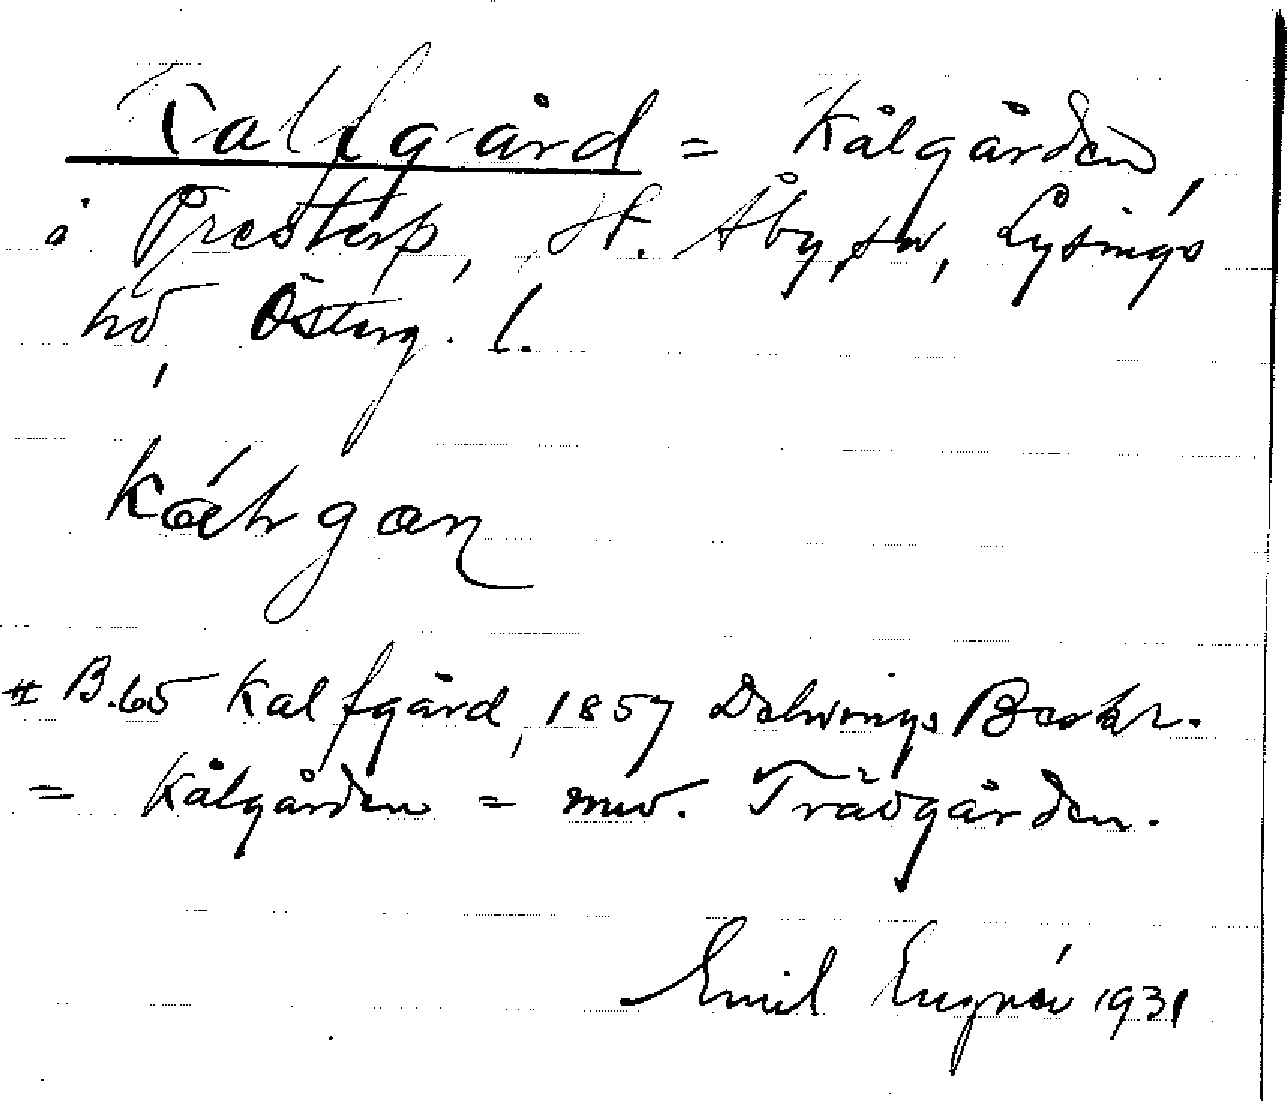 Kalfgård = Kålgården
i Prestorp, St. Åby, sn, Lysings
hd, Österg. l.
B.65 Kalfgård, 1857 Delnings Beskr.
= Kålgården = nuv. Trädgården.
Emil 1931